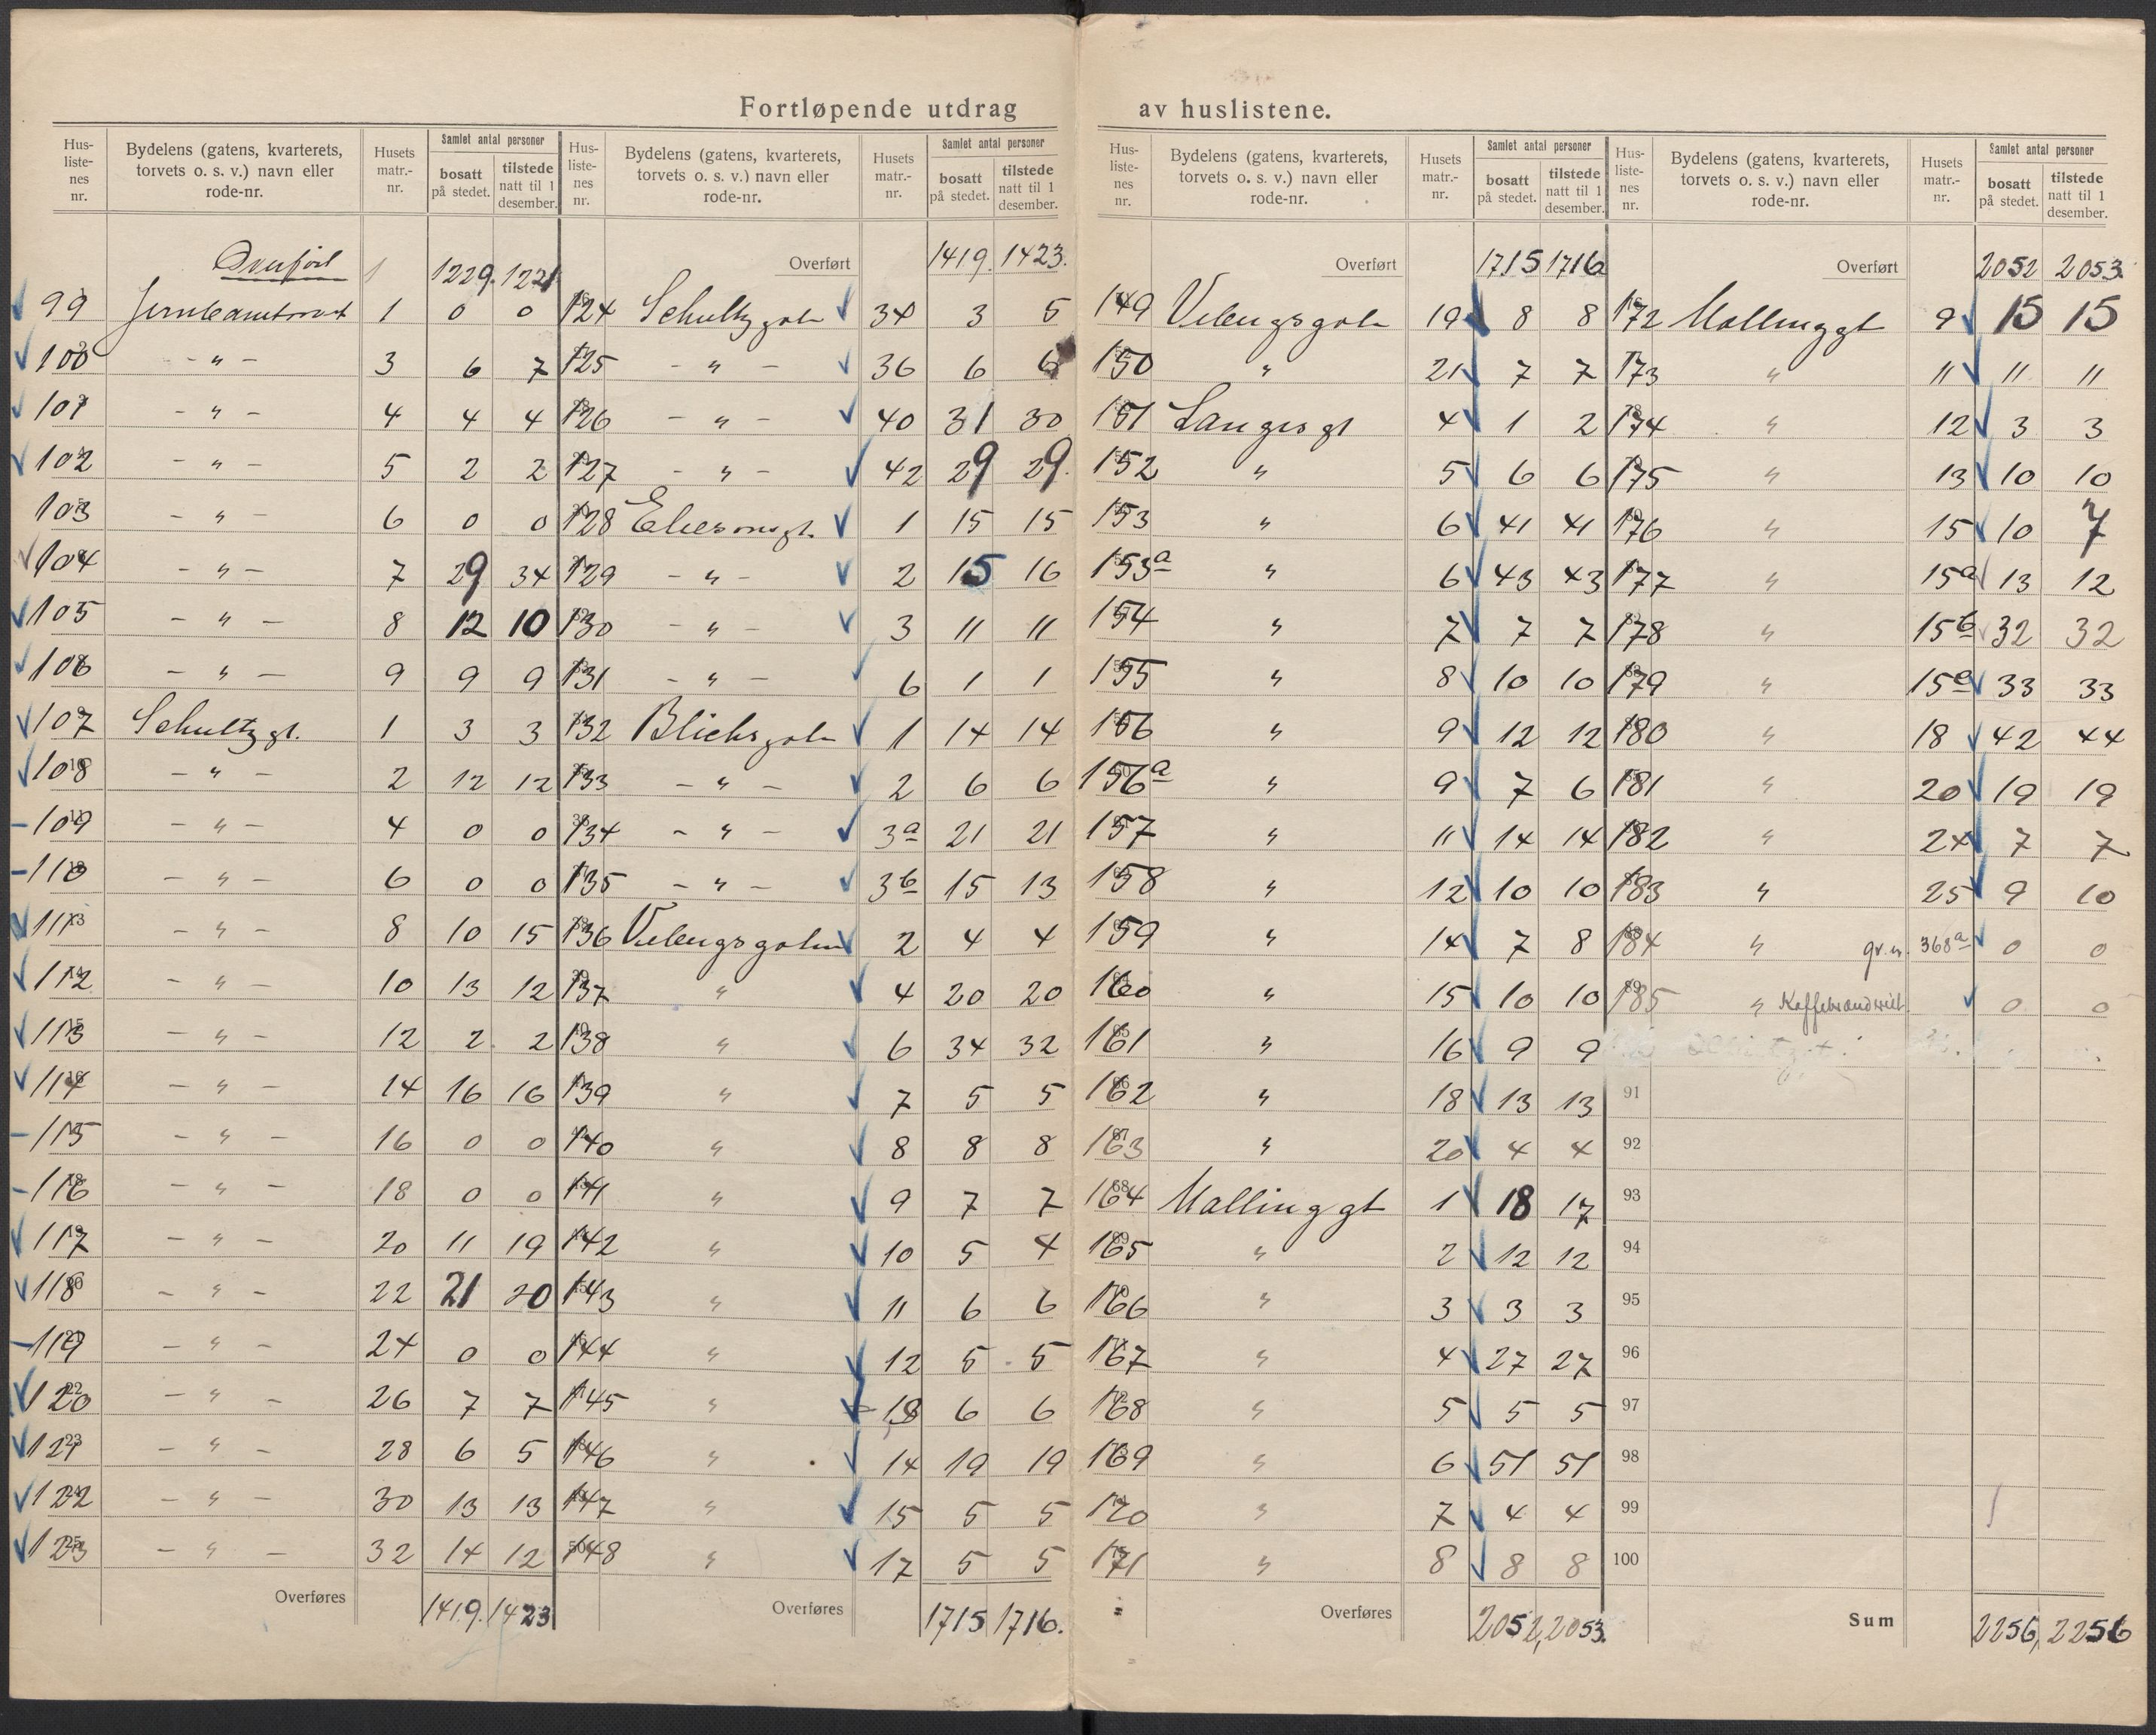 Fortløpende utdrag av huslistene.
Hus-listenes nr. | Bydelens (gatens, kvarterets, torvets o. s. v.) navn eller rode-nr. | Husets matr.-nr. | Samlet antal personer | bosatt på stedet. | tilstede natt til 1 desember.
Overført 1229. 1221
99 1 0 0
100 - " - 3 6 7
101 - " - 4 4 4
102 - " - 5 2 2
103 - " - 6 0 0
104 - " - 7 29 34
105 - " - 8 12 10
106 - " - 9 9 9
107 Schultzgt. 1 3 3
108 - " - 2 12 12
109 - " - 4 0 0
110 - " - 6 0 0
111 - " - 8 10 15
112 - " - 10 13 12
113 - " - 12 2 2
114 - " - 14 16 16
115 - " - 16 0 0
116 - " - 18 0 0
117 - " - 20 11 19
118 - " - 22 21 20
119 - " - 24 0 0
120 - " - 26 7 7
121 - " - 28 6 5
122 - " - 30 13 13
123 - " - 32 14 12
Overføres 1419. 1423
Hus-listenes nr. | Bydelens (gatens, kvarterets, torvets o. s. v.) navn eller rode-nr. | Husets matr.-nr. | Samlet antal personer | bosatt på stedet. | tilstede natt til 1 desember.
Overført 1419. 1423.
124 Schultzgaten 34 3 5
125 - " - 36 6 6
126 - " - 40 31 30
127 - " - 42 29 29.
128 1 15 15
129 - " - 2 15 16
130 - " - 3 11 11
131 - " - 6 1 1
132 Blichsgaten 1 14 14
133 - " - 2 6 6
134 - " - 3a 21 21
135 - " - 3b 15 13
136 Vibengsgaten 2 4 4
137 " 4 20 20
138 " 6 34 32
139 " 7 5 5
140 " 8 8 8
141 " 9 7 7
142 " 10 5 4
143 " 11 6 6
144 " 12 5 5
145 " 13 6 6
146 " 14 19 19
147 " 15 5 5
148 " 17 5 5
Overføres 1715 1716.
Hus-listenes nr. | Bydelens (gatens, kvarterets, torvets o. s. v.) navn eller rode-nr. | Husets matr.-nr. | Samlet antal personer | bosatt på stedet. | tilstede natt til 1 desember.
Overført 1715 1716
149 Vibengsgaten 19 8 8
150 " 21 7 7
151 Langesgt 4 1 2
152 " 5 6 6
153 " 6 41 41
153a " 6 43 43
154 " 7 7 7
155 " 8 10 10
156 " 9 12 12
156a " 9 7 6
157 " 11 14 14
158 " 12 10 10
159 " 14 7 8
160 " 15 10 10
161 " 16 9 9
162 " 18 13 13
163 " 20 4 4
164 Mallinggt 1 18 17
165 " 2 12 12
166 " 3 3 3
167 " 4 27 27
168 " 5 5 5
169 " 6 51 51
170 " 7 4 4
171 " 8 8 8
Overføres 2052, 2053.
Hus-listenes nr. | Bydelens (gatens, kvarterets, torvets o. s. v.) navn eller rode-nr. | Husets matr.-nr. | Samlet antal personer | bosatt på stedet. | tilstede natt til 1 desember.
Overført 2052 2053.
172 Mallinggt 9 15 15
173 " 11 11 11
174 " 12 3 3
175 " 13 10 10
176 " 15 10 7
177 " 15a 13 12
178 " 15b 32 32
179 " 33 33
180 " 18 42 44
181 " 20 19 19
182 " 24 7 7
183 " 25 9 10
184 " gr.n. 368a 0 0
185 " Kaffebrænderiet 0 0
91
92
93
94
95
96
97
98
99
100
Sum 2256, 2256